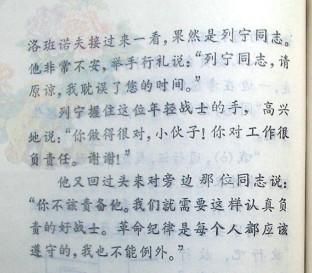 洛班诺夫接过来一看，果然是列宁同志。
他非常不安，举手行礼说：“列宁同志，请
原谅，我耽误了您的时间。”
列宁握住这位年轻战士的手，高兴
地说：“你做得很对，小伙子！你对工作很
负责任。谢谢！”
他又回过头来对旁边那位同志说：
“你不该责备他。我们就需要这样认真负
责的好战士。革命纪律是每个人都应该
遵守的，我也不能例外。”